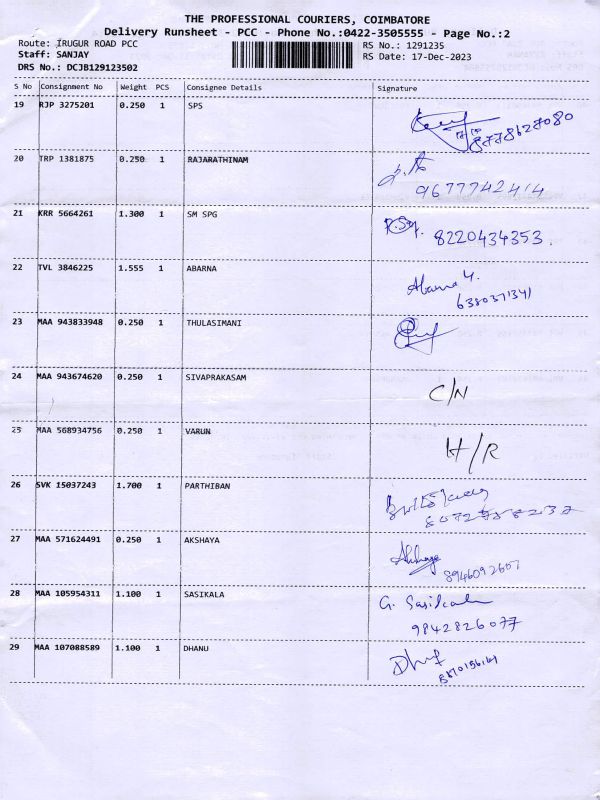 THE PROFESSIONAL COURIERS, COIMBATORE
Delivery Runsheet - PCC - Phone No.:0422-3505555 - Page No.:2
Route: IRUGUR ROAD PCC
RS No.: 129123S
Staff: SANJAY
RS Date: 17-Dec-2023
DRS No.: DCJB129123502
S No Consignment No Weight PCS Consignee Details Signature
19 RJP 3275201 0.250 1 SPS
8778627080
20 TRP 1381875 0.250 1 RAJARATHINAM
9677742414
21 KRR 5664261 1.300 1 SM SPG
8220434353.
22 TVL 3846225 1.555 1 ABARNA
Abarna
6380371341
23 MAA 943833948 0.250 1 THULASIMANI
24 MAA 943674620 0.250 1 SIVAPRAKASAM
C/N
25 MAA 568934756 0.250 1 VARUN
H/R
26 SVK 15037243 1.700 1 PARTHIBAN
27 MAA 571624491 0.250 1 AKSHAYA
28 MAA 105954311 1.100 1 SASIKALA
G. Sasikala
9842826077
29 MAA 107088589 1.100 1 DHANU